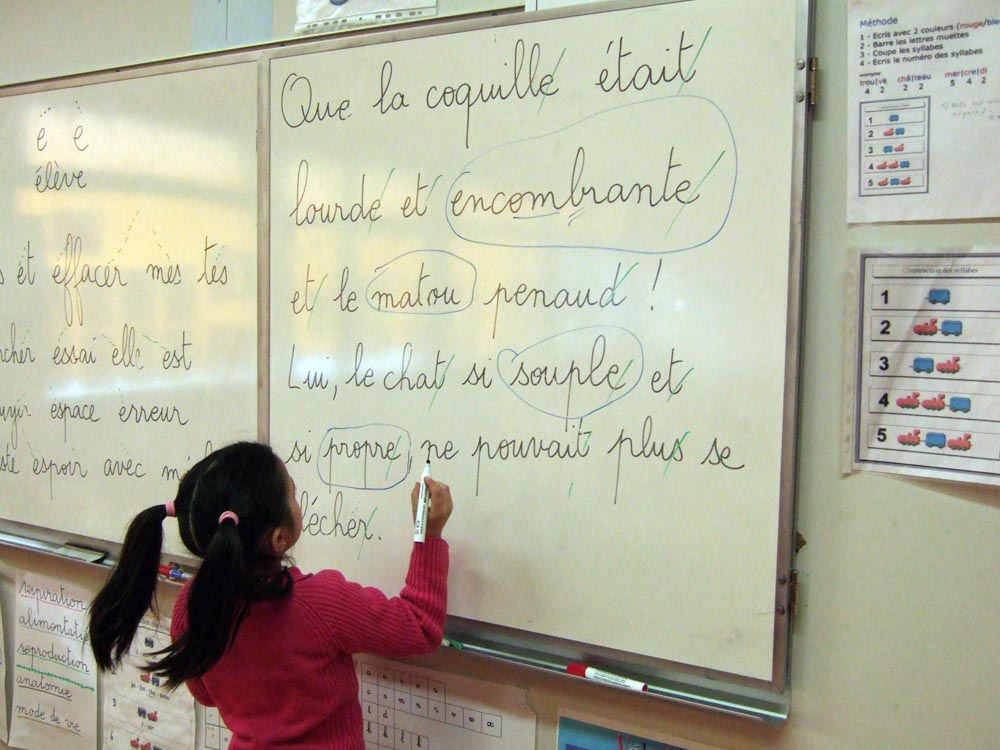 é è
élève
et effacer mes tes
essai elle est
espace erreur
espoir avec
Que la coquille était
lourde et encombrante
et le matou penaud !
Lui, le chat si souple et
si propre, ne pouvait plus se
lécher.
Méthode
1 - Ecris avec 2 couleurs (rouge/ble
2 - Barre les lettres muettes
3 - Coupe les syllabes
4 - Ecris le numéro des syllabes
exemples
trou|ve châ|teau mer|cre|di
4 2 2 2 5 4 2
1
2
3
4
5
Construction des syllabes
1
2
3
4
5
respiration
alimentati
reproduction
anatomie
mode de vie
3